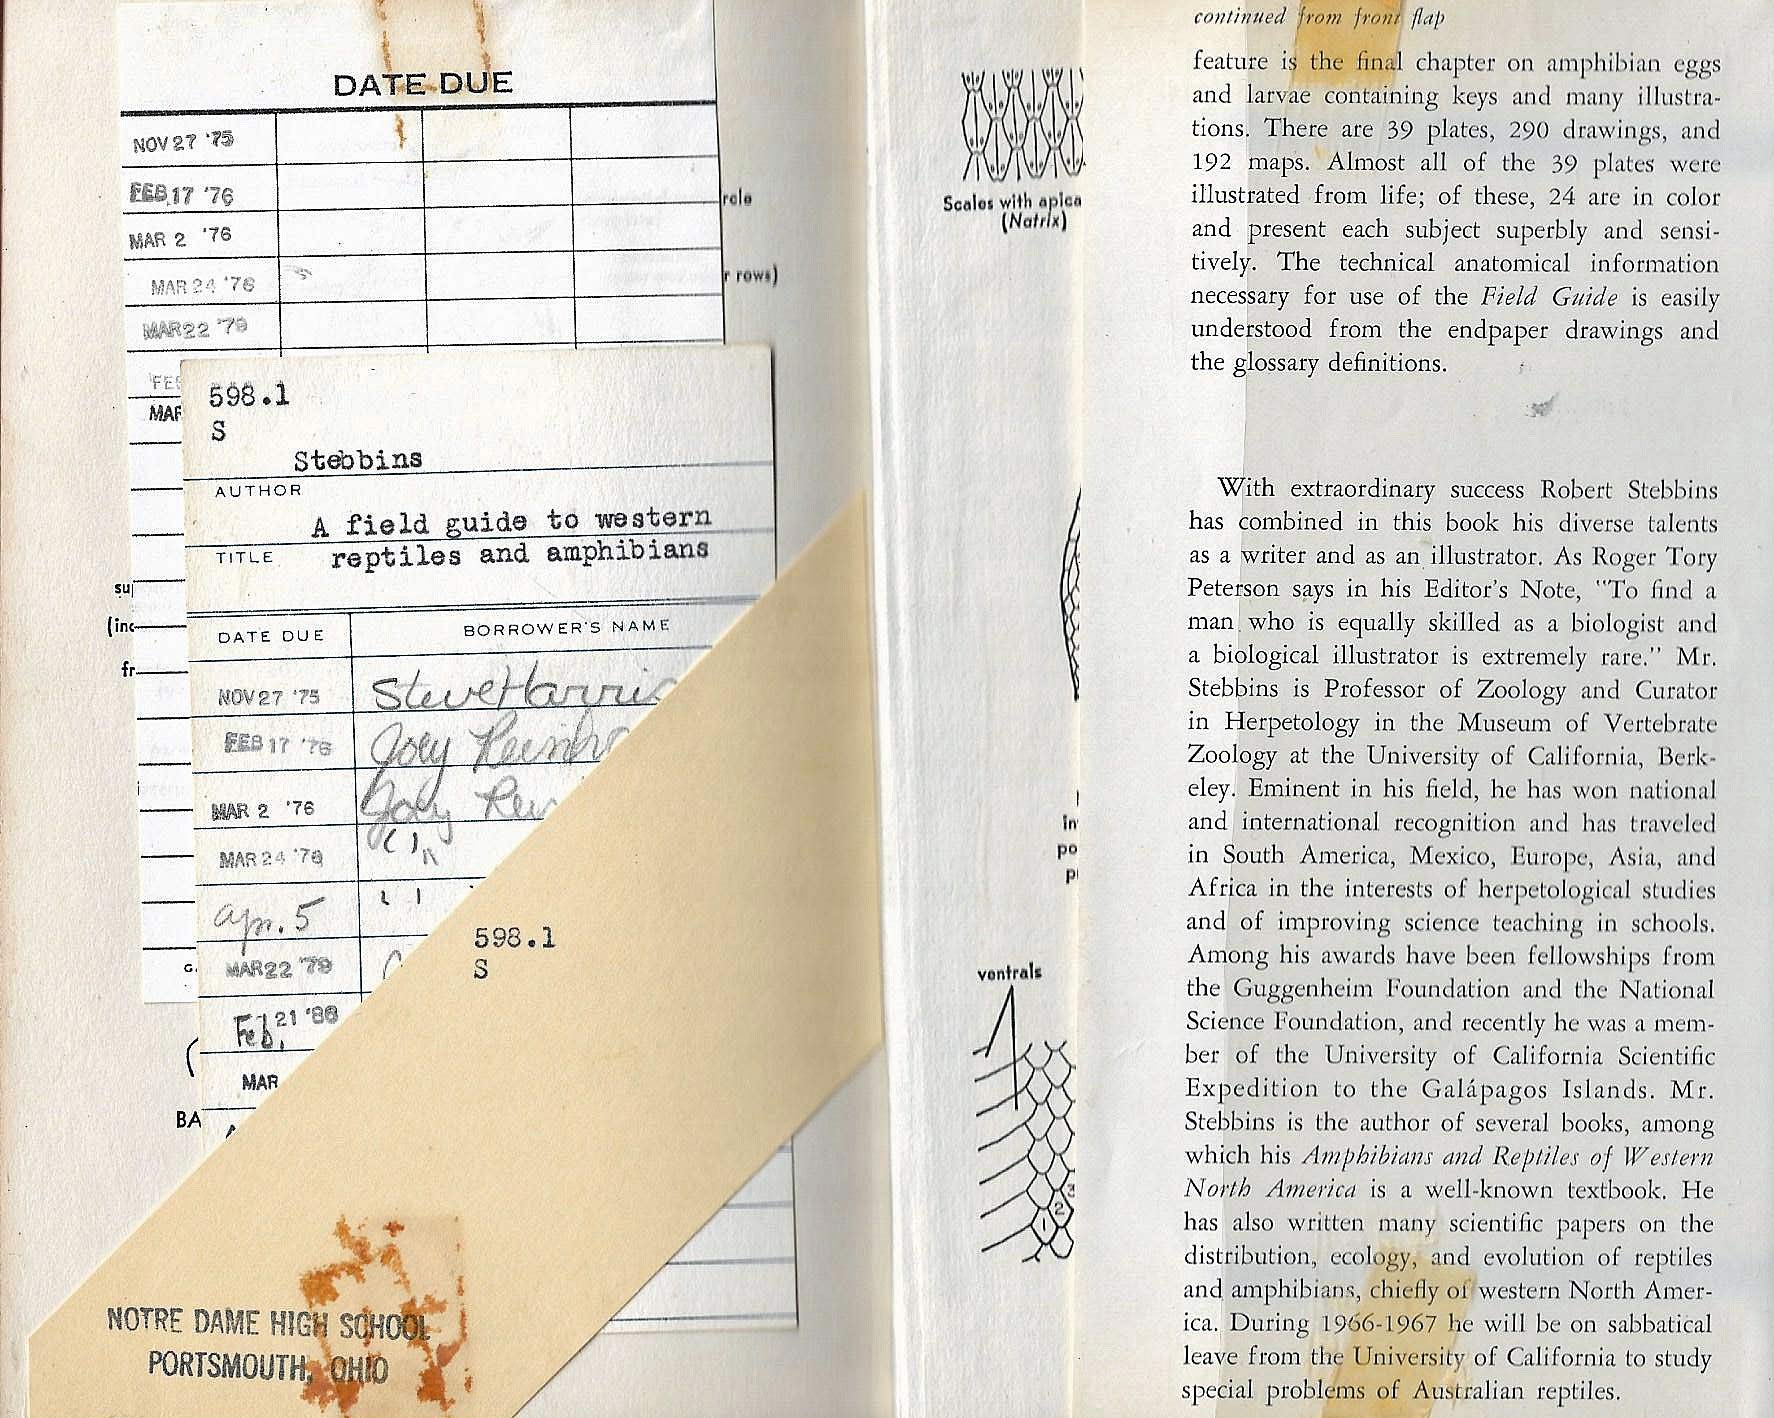 DATE DUE
NOV 27 '75
FEB 17 '76
MAR 2 '76
MAR 24 '76
MAR 22 '79
FEB
MAR
rcle
r rows)
su
(inc
fr
G.
(
BA
598.1
S
Stebbins
AUTHOR
A field guide to western
TITLE reptiles and amphibians
DATE DUE BORROWER'S NAME
NOV 27 '75 Steve Harris
FEB 17 '76 Joey
MAR 2 '76 Joey
MAR 24 '76
Apr. 5
MAR 22 '79
Feb. 21 '86
MAR
598.1
S
NOTRE DAME HIGH SCHOOL
PORTSMOUTH, OHIO
Scales with apica
(Natrix)
in
po
p
ventrals
3
2
1
continued from front flap
feature is the final chapter on amphibian eggs
and larvae containing keys and many illustra-
tions. There are 39 plates, 290 drawings, and
192 maps. Almost all of the 39 plates were
illustrated from life; of these, 24 are in color
and present each subject superbly and sensi-
tively. The technical anatomical information
necessary for use of the Field Guide is easily
understood from the endpaper drawings and
the glossary definitions.
With extraordinary success Robert Stebbins
has combined in this book his diverse talents
as a writer and as an illustrator. As Roger Tory
Peterson says in his Editor's Note, "To find a
man who is equally skilled as a biologist and
a biological illustrator is extremely rare." Mr.
Stebbins is Professor of Zoology and Curator
in Herpetology in the Museum of Vertebrate
Zoology at the University of California, Berk-
eley. Eminent in his field, he has won national
and international recognition and has traveled
in South America, Mexico, Europe, Asia, and
Africa in the interests of herpetological studies
and of improving science teaching in schools.
Among his awards have been fellowships from
the Guggenheim Foundation and the National
Science Foundation, and recently he was a mem-
ber of the University of California Scientific
Expedition to the Galápagos Islands. Mr.
Stebbins is the author of several books, among
which his Amphibians and Reptiles of Western
North America is a well-known textbook. He
has also written many scientific papers on the
distribution, ecology, and evolution of reptiles
and amphibians, chiefly of western North Amer-
ica. During 1966-1967 he will be on sabbatical
leave from the University of California to study
special problems of Australian reptiles.